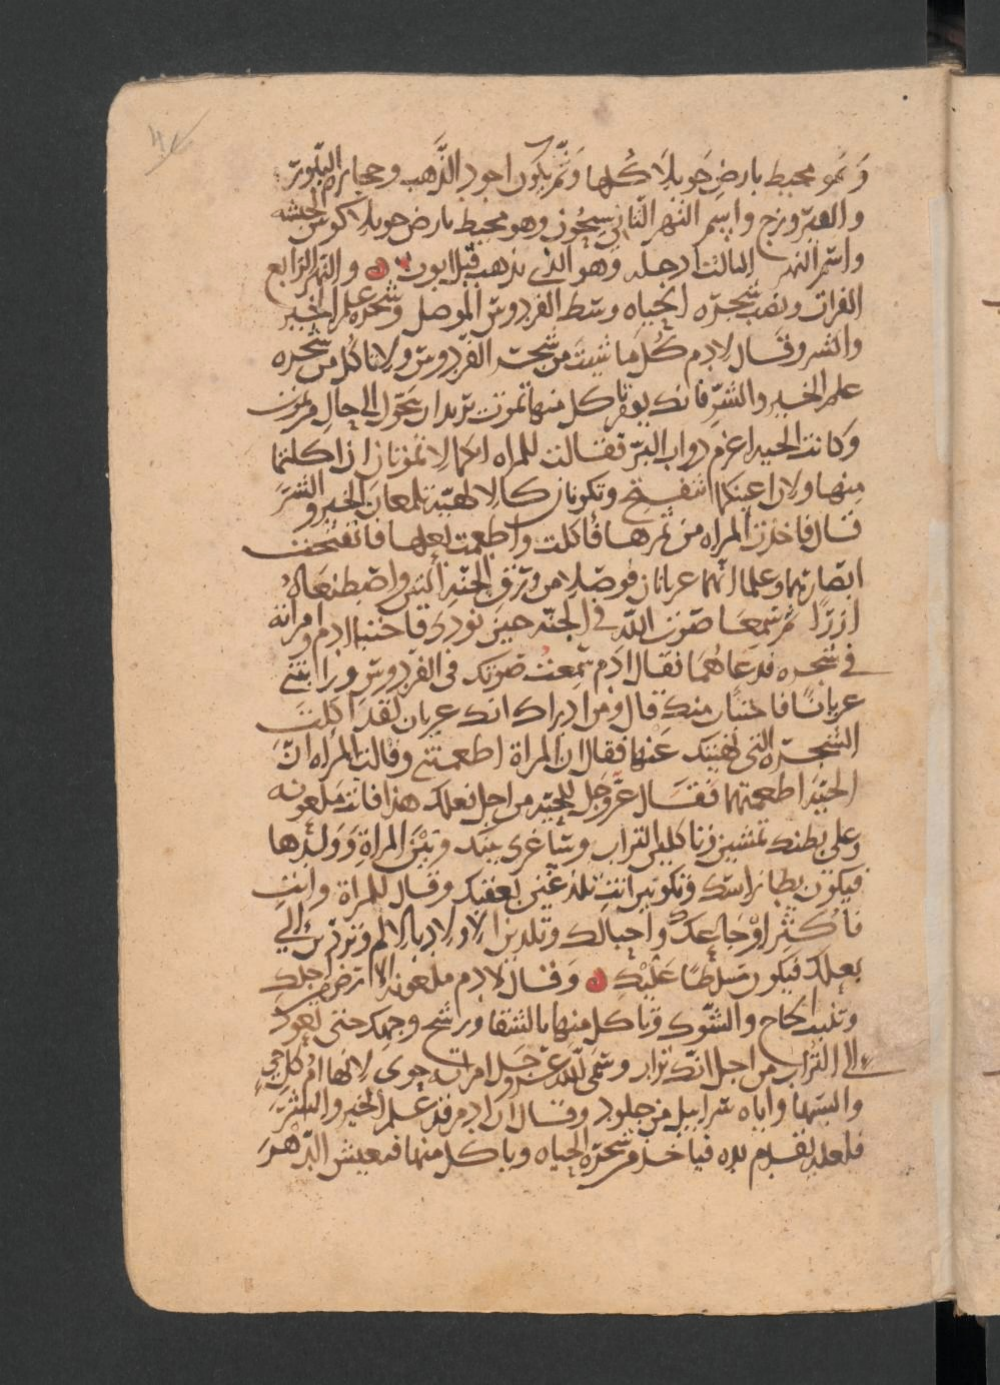 وهو محيط بارض حويلا كلها وثم يكون اجود الذهب وحجاره البلور
والفيروزج واسم النهر الثاني سيحون وهو محيط بارض حويلا كوش الحبشه
واسم النهر الثالث دجله وهو الذي يذهب قبل اثور والنهر الرابع
الفرات ونصب شجره الحياه وسط الفردوس الموصل وشجره علم الخير
والشر وقال لادم كل ما شيت من شجر الفردوس ولا تاكل من شجره
علم الخير والشر فانك يوم تاكل منها تموت يريد ان تحول الى حال من يموت
وكانت الحيه اعرم دواب البر فقالت للمراه انكما لا تموتان ان اكلتما
منها ولان اعينكما تنفتح وتكونان كالالهيه تعلمان الخير والشر
قال فاخذت المراه من ثمرها فاكلت واطعمت بعلها فانفتحت
ابصارهما وعلما انهما عريانان فوصلا من ورق الجنه التين واصطنعاه
ازرا ثم سمعا صوت الله في الجنه حين نودي فاختبا ادم وامراته
في شجره فدعاهما فقال ادم سمعت صوتك في الفردوس ورايتني
عريانا فاختبات منك قال ومن ادراك انك عريان لقد اكلت
الشجره التي نهيتك عنها فقال ان المراة اطعمتني وقالت المراه ان
الحيه اطعمتها فقال عز وجل للحيه من اجل فعلك هذا فانت ملعونه
وعلى بطنك تمشين وتاكلين التراب وساغري بينك وبين المراة وولدها
فيكون يطا راسك وتكونين انت تلدغين بعقبك وقال للمراة وانت
فاكثر اوجاعك واحبالك وتلدين الاولاد بالالم وتردين الى
بعلك فيكون مسلطا عليك وقال لادم ملعونه الارض من اجلك
وتنبت الحاج والشوك وتاكل منها بالشقا ورشح وجهك حتى تعود
الى التراب من اجل انك تراب وسمى الله عز وجل امراته حوى لانها ام كل حي
والبسها واياه سرابيل من جلود وقال ان ادم قد علم الخير والشر
فلعله يقدم يده فياخذ من شجره الحياه وياكل منها فيعيش الدهر